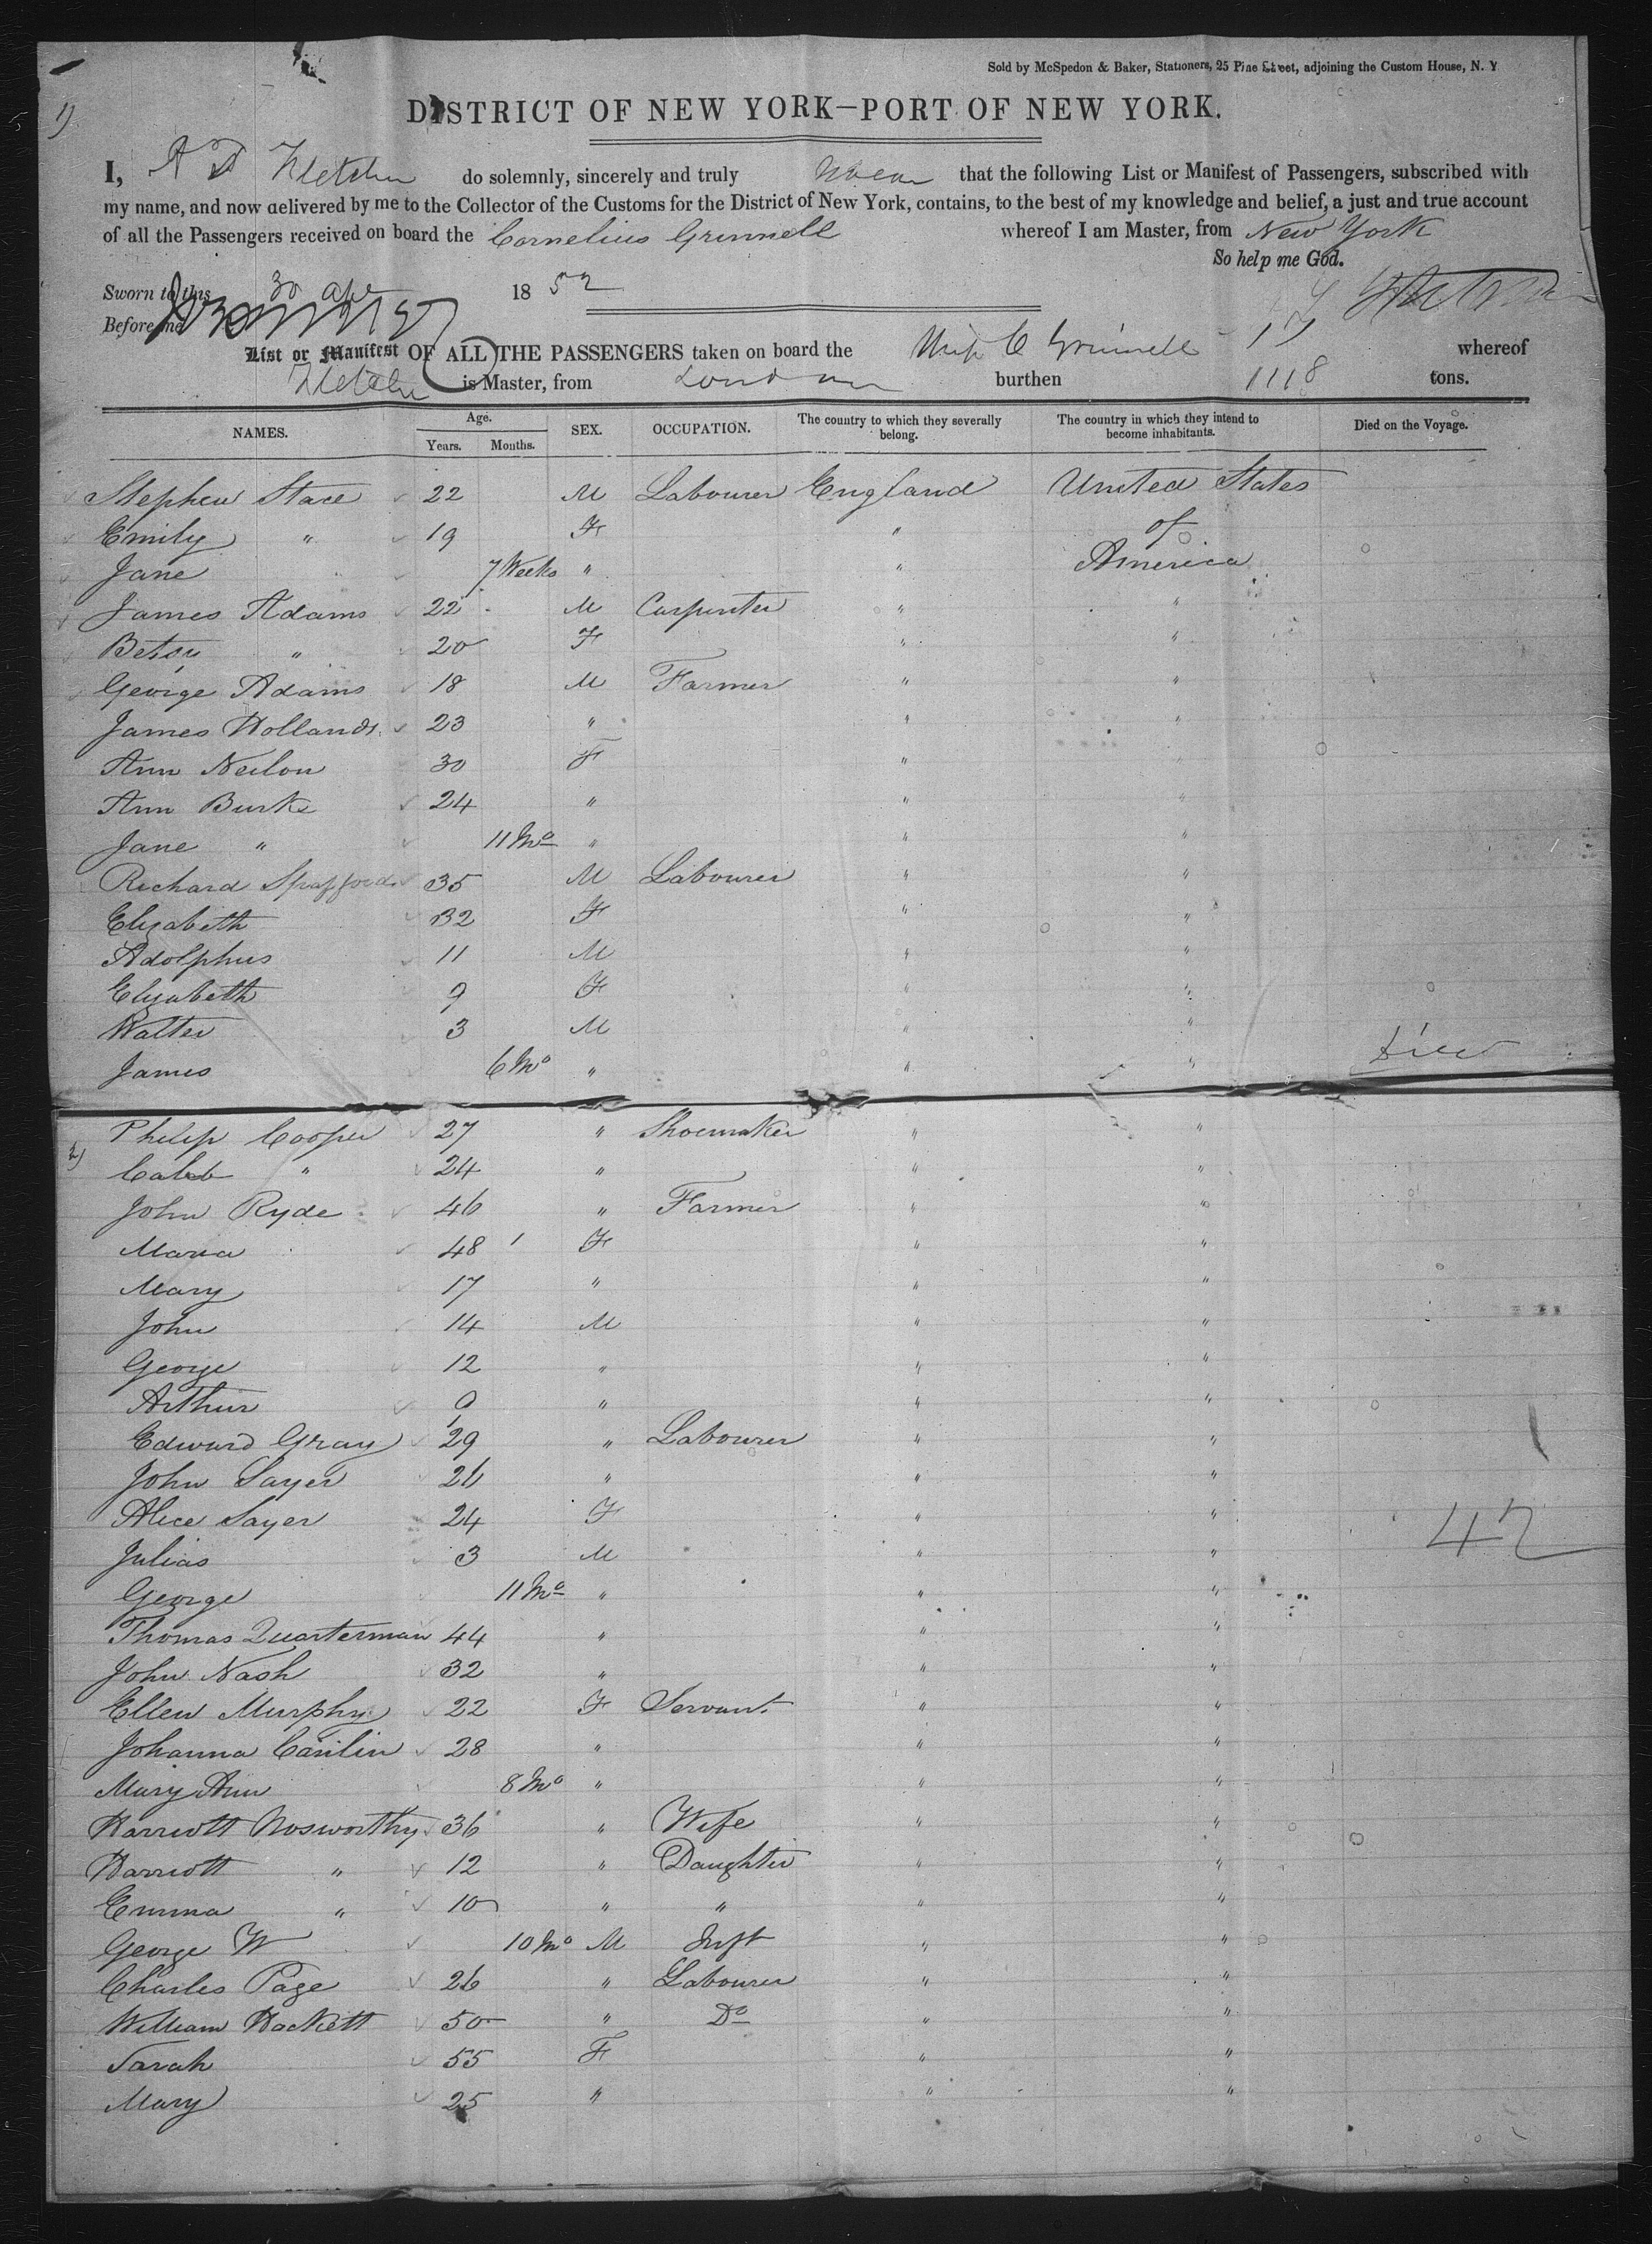 Sold by McSpedon & Baker, Stationers, 25 Pine Street, adjoining the Custom House, N. Y
1)
DISTRICT OF NEW YORK—PORT OF NEW YORK.
I, A D Fletcher do solemnly, sincerely and truly swear that the following List or Manifest of Passengers, subscribed with
my name, and now delivered by me to the Collector of the Customs for the District of New York, contains, to the best of my knowledge and belief, a just and true account
of all the Passengers received on board the Cornelius Grinnell whereof I am Master, from New York
So help me God.
Sworn to this 30 Apr 1852
Before me
List or Manifest OF ALL THE PASSENGERS taken on board the Ship C Grinnell whereof
Fletcher is Master, from London burthen 1118 tons.
NAMES. Age. Years. Months. SEX. OCCUPATION. The country to which they severally belong. The country in which they intend to become inhabitants. Died on the Voyage.
Stephen Stace 22 M Labourer England United States
Emily " 19 F " of
Jane 7 Weeks " " America
James Adams 22 M Carpenter " "
Betsy " 20 F " "
George Adams 18 M Farmer " "
James Hollands 23 " " "
Ann Neilon 30 F " "
Ann Burke 24 " " "
Jane " 11 Mo " " "
Richard Spafford 35 M Labourer " "
Elizabeth 32 F " "
Adolphus 11 M " "
Elizabeth 9 F " "
Walter 3 M " "
James 6 Mo " " " Died
2)
Philip Cooper 27 " Shoemaker " "
Caleb " 24 " " "
John Ryde 46 " Farmer " "
Maria 48 F " "
Mary 17 " " "
John 14 M " "
George 12 " " "
Arthur 9 " " "
Edward Gray 29 " Labourer " "
John Sayer 26 " " "
Alice Sayer 24 F " " 42
Julias 3 M " "
George 11 Mo " " "
Thomas Quarterman 44 " " "
John Nash 32 " " "
Ellen Murphy 22 F Servant. " "
Johanna Carilin 28 " " "
Mary Ann 8 Mo " " "
Harriott Nosworthy 36 " Wife " "
Harriott " 12 " Daughter " "
Emma " 10 " " " "
George W 10 Mo M Inft " "
Charles Page 26 " Labourer " "
William Hackett 50 " Do " "
Sarah 55 F " "
Mary 25 " " "